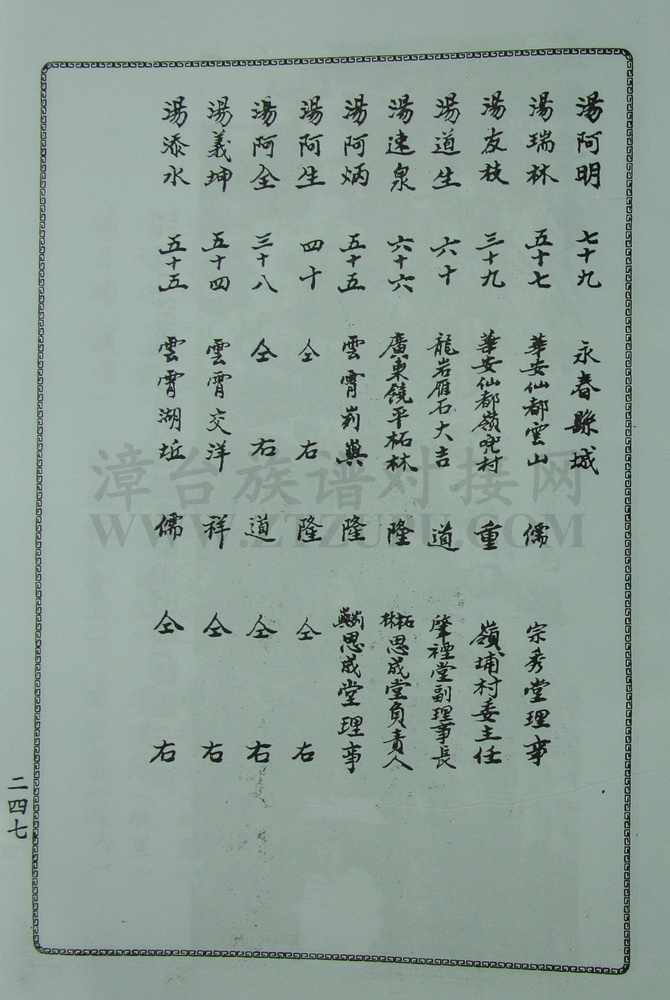 湯阿明 七十九 永春縣城
湯瑞林 五十七 華安仙都雲山 儒 宗秀堂理事
湯友枝 三十九 華安仙都嶺兜村 重 嶺埔村委主任
湯道生 六十 龍岩雁石大吉 道 肇禋堂副理事長
湯速泉 六十六 廣東饒平柘林 隆 柘林思成堂負責人
湯阿炳 五十五 雲霄崱㠘 隆 崱㠘思成堂理事
湯阿生 四十 仝右 隆 仝右
湯阿全 三十八 仝右 道 仝右
湯義坤 五十四 雲霄交洋 祥 仝右
湯添水 五十五 雲霄湖坵 儒 仝右
二四七
漳台族谱对接网
WWW.ZTZUPU.COM